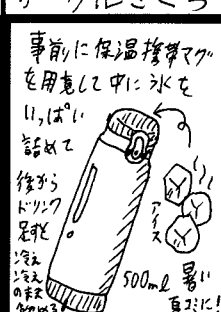 事前に保温携帯マグ
を用意して中に氷を
いっぱい
詰めて
後から
ドリンク
足すと
冷え
冷え
のまま
アイス
500ml
暑い
夏コミに!